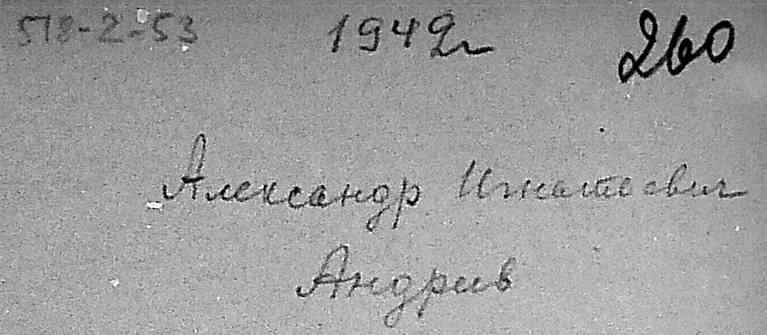 518-2-53 1942г 260
Александр Игнатович
Андрив